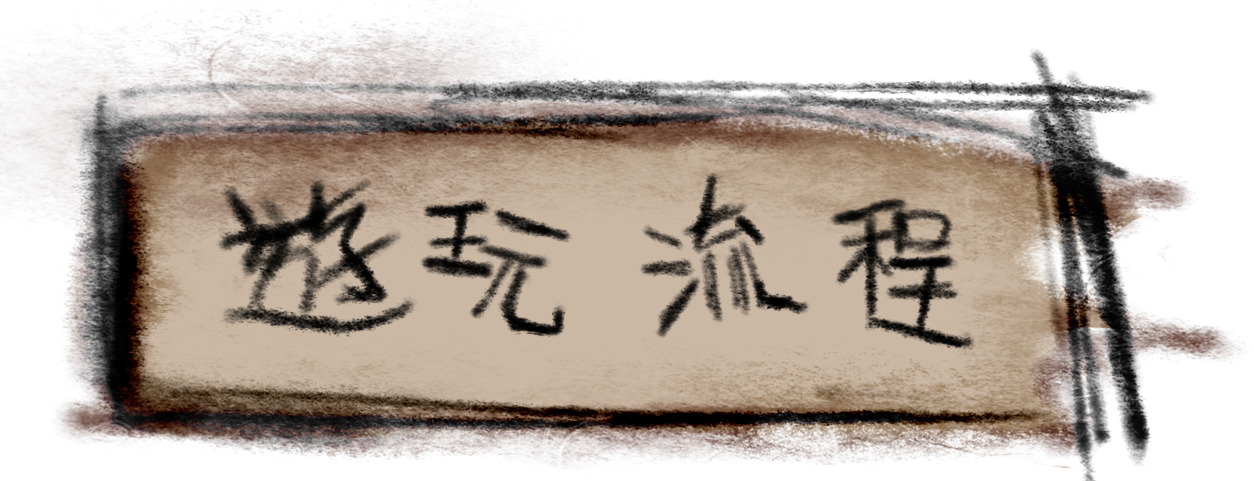 遊玩流程